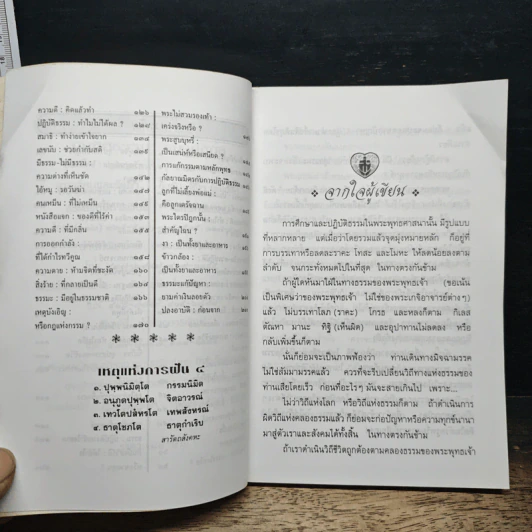 ความดี : คิดแล้วทำ ๑๒๖
ปฏิบัติธรรม : ทำไมไม่ได้ผล ? ๑๒๘
สมาธิ : ทำง่ายเข้าใจยาก ๑๓๔
เลขนับ : ช่วยกำกับสติ ๑๓๙
มีธรรม-ไม่มีธรรม :
ความต่างที่เห็นชัด
ไอ้หนู : รอวันฆ่า
คนเหมือน : ที่ไม่เหมือน
หนังสือแจก : ของดีที่ไร้ค่า
ความดี : ที่มีกลิ่น
การออกกำลัง :
ที่ได้กำไรทวีคูณ
ความตาย : ห้ามจิตที่ชะงัด
สิ่งร้าย : ที่กลายเป็นดี
ธรรมะ : มีอยู่ในธรรมชาติ
เหตุบังเอิญ :
หรือกฎแห่งกรรม ?
พระไม่สวมรองเท้า :
เคร่งจริงหรือ ?
พระสูบบุหรี่ :
เป็นเสน่ห์หรือเสนียด ?
การแก้กรรมตามหลักพุทธ
กัลยาณมิตรกับการปฏิบัติธรรม
ลูกที่ไม่เลี้ยงพ่อแม่ :
คือลูกเดรัจฉาน
พระไตรปิฎกนั้น :
สำคัญไฉน ?
งา : เป็นทั้งยาและอาหาร
ข้าวกล้อง :
เป็นทั้งยาและอาหาร
ธรรมะแก้ปัญหา :
ยามค่าเงินลอยตัว
ปลงอาบัติ : ก่อนจาก
เหตุแห่งการฝัน ๔
๑. ปุพฺพนิมิตฺโต กรรมนิมิต
๒. อนุภูตปุพฺโต จิตอาวรณ์
๓. เทวโตปสํหรโต เทพสังหรณ์
๔. ธาตุโขภโต ธาตุกำเริบ
สารัตถสังคหะ
จากใจผู้เขียน
การศึกษาและปฏิบัติธรรมในพระพุทธศาสนานั้น มีรูปแบบ
ที่หลากหลาย แต่เมื่อว่าโดยรวมแล้วจุดมุ่งหมายหลัก ก็อยู่ที่
การบรรเทาหรือลดละราคะ โทสะ และโมหะ ให้ลดน้อยลงตาม
ลำดับ จนกระทั่งหมดไปในที่สุด ในทางตรงกันข้าม
ถ้าผู้ใดหันมาใฝ่ในทางธรรมของพระพุทธเจ้า (ขอเน้น
เป็นพิเศษว่าของพระพุทธเจ้า ไม่ใช่ของพระเกจิอาจารย์ต่าง ๆ)
แล้ว ไม่บรรเทาโลภ (ราคะ) โกรธ และหลงก็ตาม กิเลส
ตัณหา มานะ ทิฐิ (เห็นผิด) และอุปาทานไม่ลดลง หรือ
กลับเพิ่มขึ้นก็ตาม
นั่นก็ย่อมจะเป็นภาพฟ้องว่า ท่านเดินทางมิจฉามรรค
ไม่ใช่สัมมามรรคแล้ว ควรที่จะรีบเปลี่ยนวิถีทางแห่งธรรมของ
ท่านเสียโดยเร็ว ก่อนที่อะไรๆ มันจะสายเกินไป เพราะ...
ไม่ว่าวิถีแห่งโลก หรือวิถีแห่งธรรมก็ตาม ถ้าดำเนินการ
ผิดวิถีแห่งคลองธรรมแล้ว ก็ย่อมจะก่อปัญหาหรือความทุกข์นานา
มาสู่ตัวเราและสังคมได้ทั้งสิ้น ในทางตรงกันข้าม
ถ้าเราดำเนินวิถีชีวิตถูกต้องตามคลองธรรมของพระพุทธเจ้า